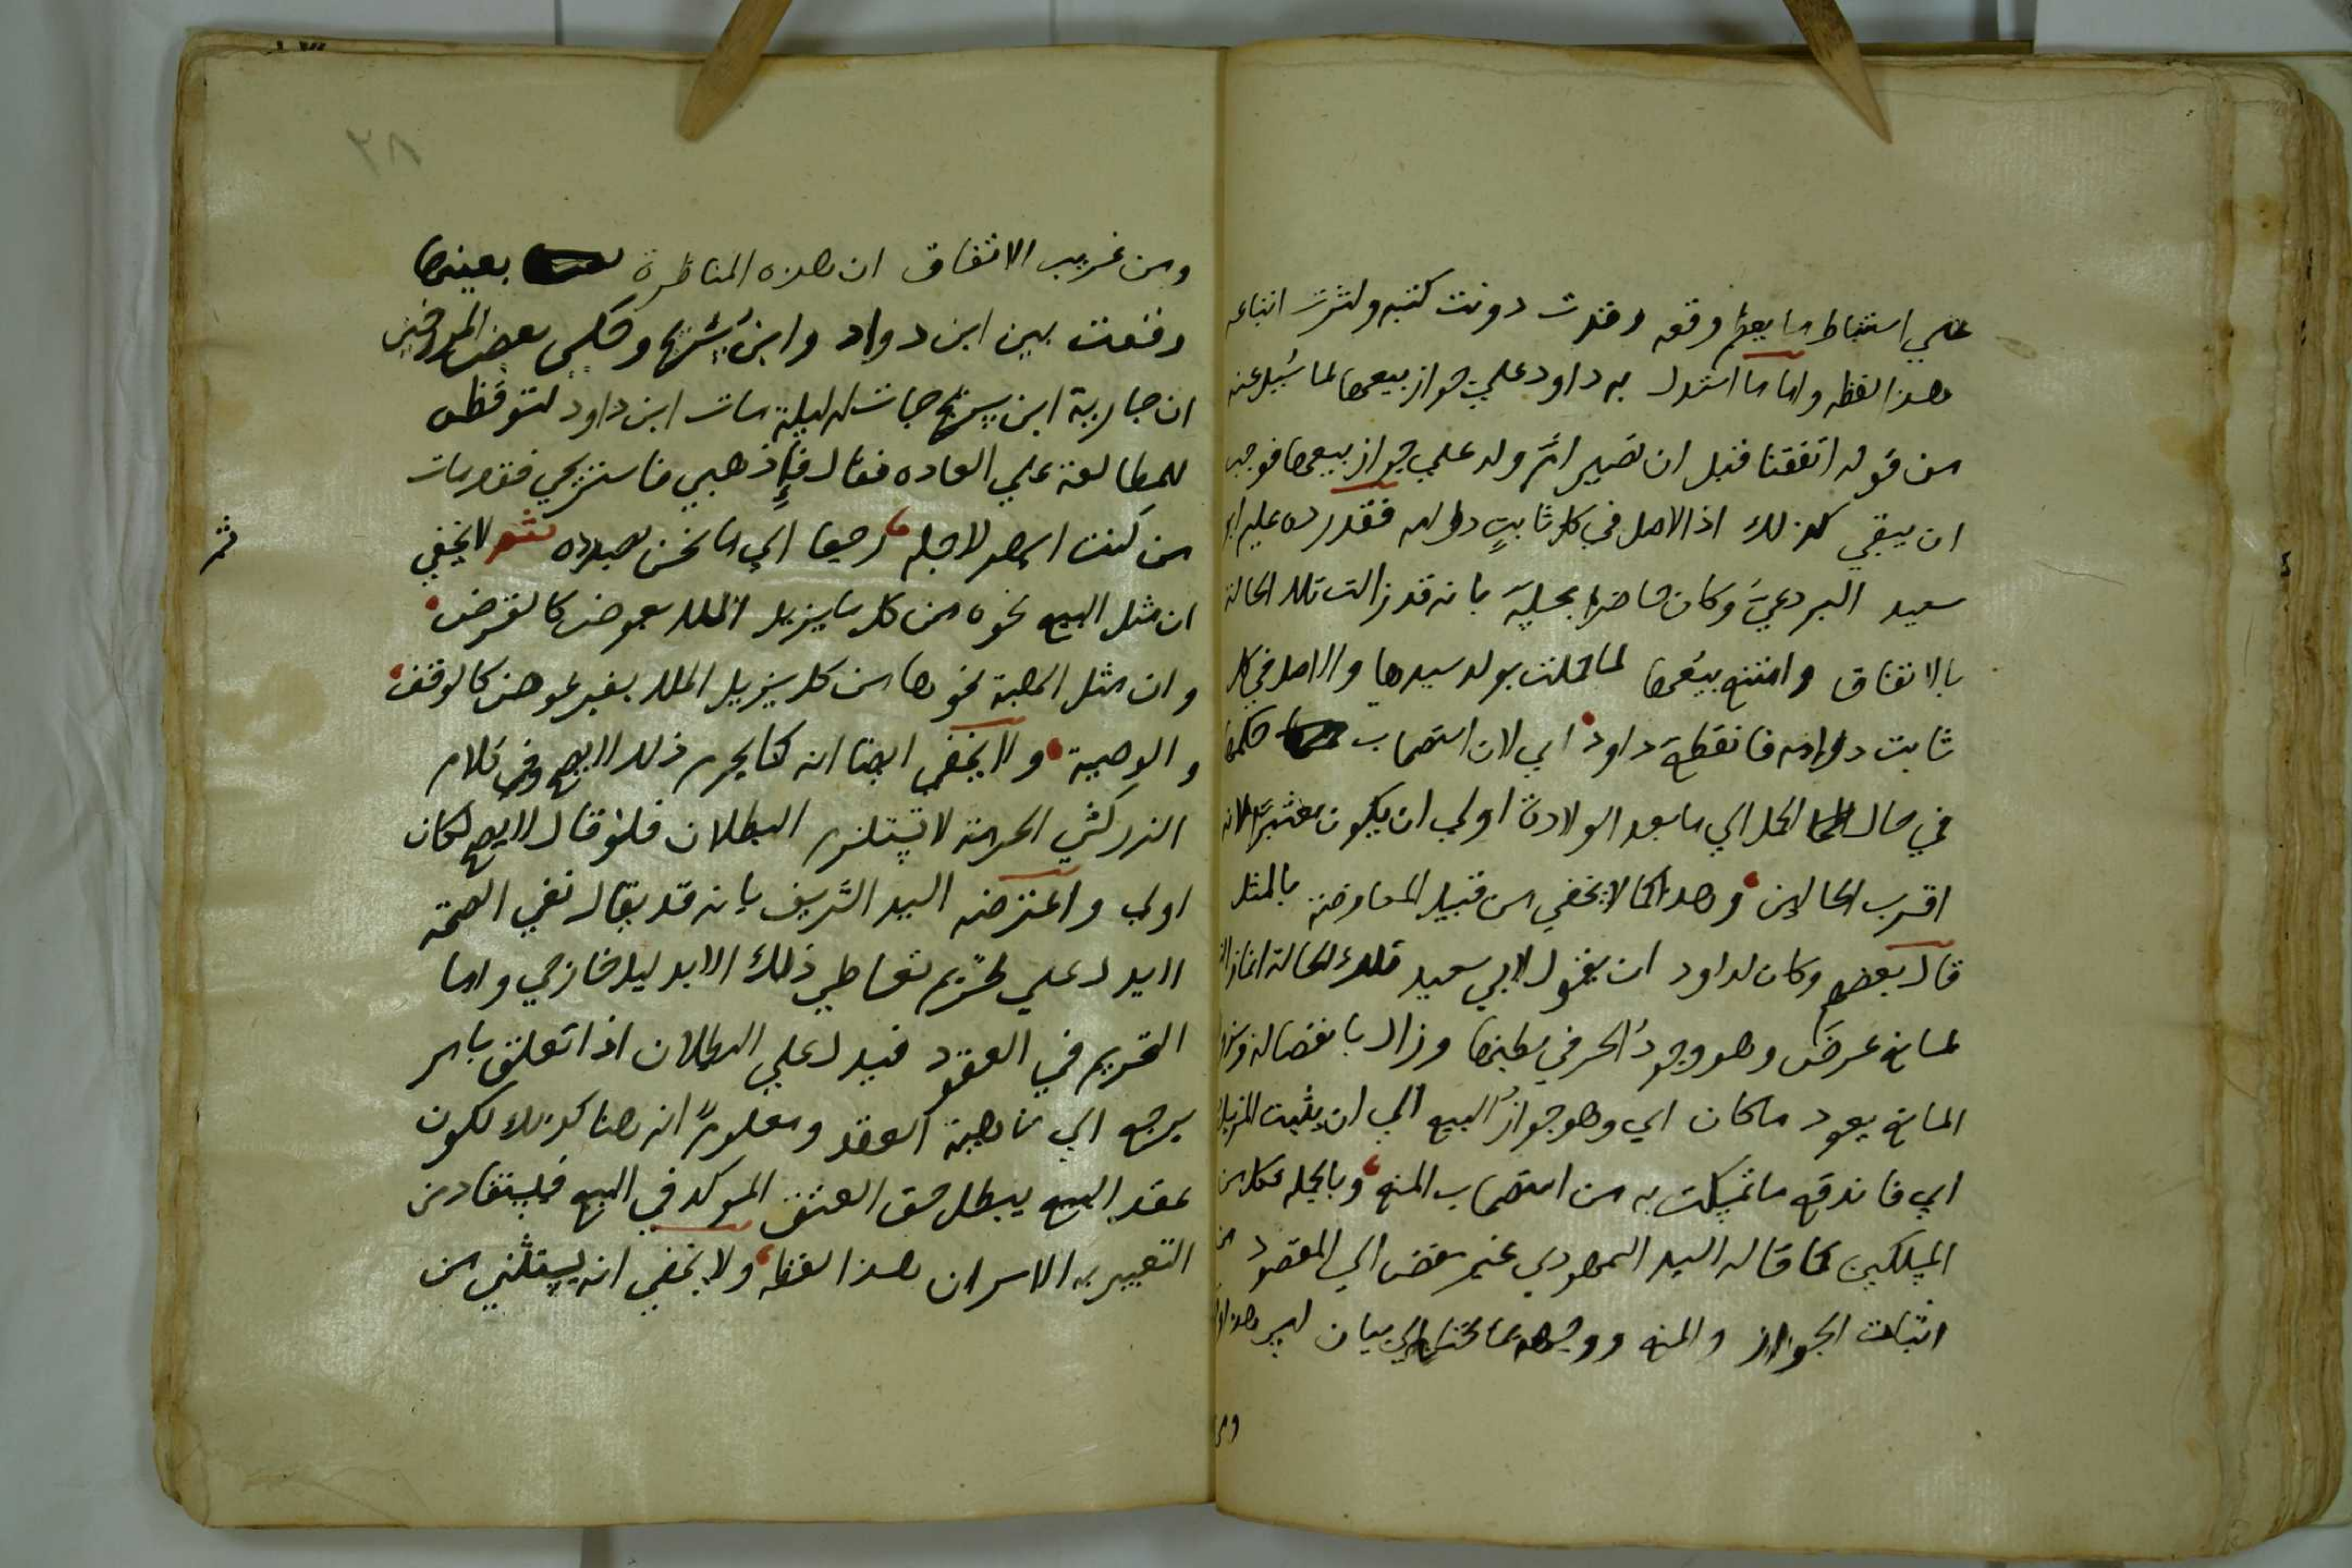 علي استنباط ما يعم وقعه وقدت دونت كتبه ولثرت اتباعه
هذا لفظه واما ما استدل به داود علي جواز بيعها لما سُيل عنه
من قوله اتفقنا قبل ان تصير ام ولد علي جواز بيعها فوجب
ان يبقي كذلك اذ الاصل في كل ثابت دوامه فقد رده عليه ابو
سعيد البردعي وكان حاضرا بمجلسه بانه قد زالت تلك الحالة
بالاتفاق وامتنع بيعها لما حملت بولد سيدها والاصل في كل
ثابت دوامه فانقطع داود اي لان استصحاب حكمها
في حال الحمل الي ما بعد الولادة اولي ان يكون معتبرا لانه
اقرب الحالين وهذا كما لا يخفي من قبيل المعارضة بالمثل
قال بعضهم وكان لداود ان يقول لابي سعيد تلك الحالة انما زالت
لمانع عرض وهو وجود الحر في بطنها وزال بانفصاله وبزوال
المانع يعود ما كان اي وهو جواز البيع الي ان يثبت المزيل
اي فاندفع ما تمسكت به من استصحاب المنع وبالجملة فكل من
المسلكين كما قاله السيد السمهودي غير مفض الي المقصود من
اثبات الجواز والمنع ووجهه بما يحتاج الي بيان ليس هذا
ومن
٢٨
ومن غريب الاتفاق ان هذه المناظرة بعينها
وقعت بين ابن دواد وابن سُريج وحكي بعض المورخين
ان جارية ابن سريج جات له ليلة مات ابن داود لتوقظه
للمطالعة علي العاده فقال اذهبي فاستريحي فقد مات
من كنت اسهر لاجله رجعنا الي ما نحن بصدده ثم لا يخفي
ثم
ان مثل البيع نحوه من كل ما يزيل الملك بعوض كالقرض
وان مثل الهبة نحوها من كل يزيل الملك بغير عوض كالوقف
والوصية ولا يخفي ايضا انه كما يحرم ذلك لا يصح وفي كلام
الزركشي الحرمة لا تستلزم البطلان فلو قال لا يصح لكان
اولي واعترضه السيد الشريف بانه قد يقال نفي الصحة
لا يدل علي تحريم تعاطي ذلك الا بدليل خارجي واما
التحريم في العقود فيدل علي البطلان اذا تعلق بامر
يرجع الي ماهية العقد ومعلوم انه هنا كذلك لكون
عقد البيع يبطل حق العتق الموكد في البيع فيستفاد من
التعبير به الامران هذا لفظه ولا يخفي انه يستثني من